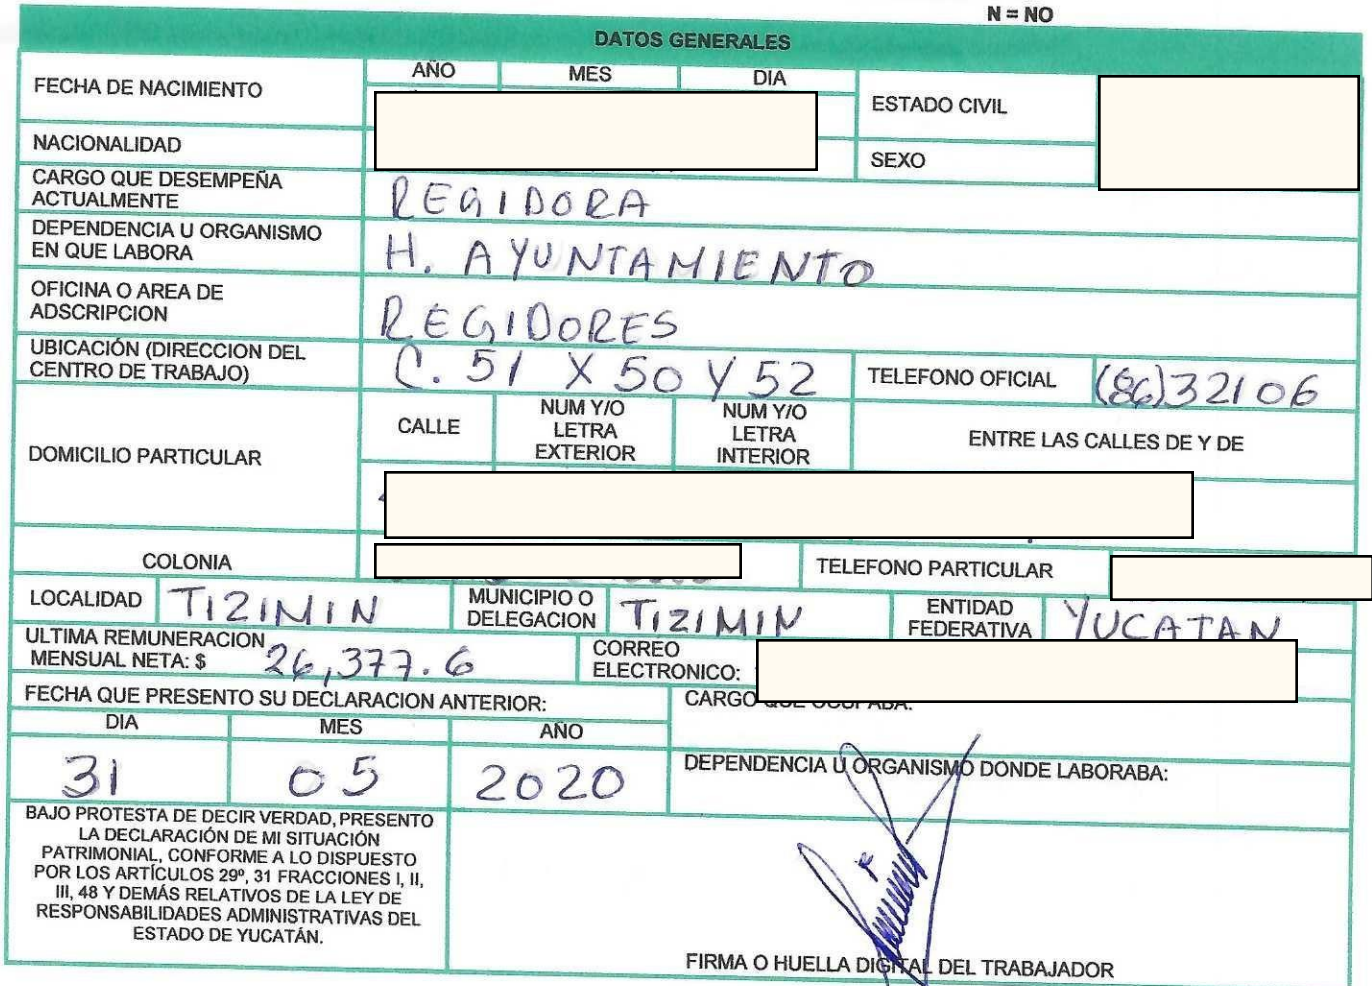 N = NO
DATOS GENERALES
FECHA DE NACIMIENTO
AÑO MES DIA
ESTADO CIVIL
NACIONALIDAD
SEXO
CARGO QUE DESEMPEÑA
ACTUALMENTE
REGIDORA
DEPENDENCIA U ORGANISMO
EN QUE LABORA
H. AYUNTAMIENTO
OFICINA O AREA DE
ADSCRIPCION
REGIDORES
UBICACIÓN (DIRECCION DEL
CENTRO DE TRABAJO)
C. 51 X 50 Y 52
TELEFONO OFICIAL
(86)32106
DOMICILIO PARTICULAR
CALLE
NUM Y/O
LETRA
EXTERIOR
NUM Y/O
LETRA
INTERIOR
ENTRE LAS CALLES DE Y DE
COLONIA
TELEFONO PARTICULAR
LOCALIDAD
TIZIMIN
MUNICIPIO O
DELEGACION
TIZIMIN
ENTIDAD
FEDERATIVA
YUCATAN
ULTIMA REMUNERACION
MENSUAL NETA: $
26,377.6
CORREO
ELECTRONICO:
FECHA QUE PRESENTO SU DECLARACION ANTERIOR:
CARGO QUE OCUPABA:
DIA MES AÑO
31 05 2020
DEPENDENCIA U ORGANISMO DONDE LABORABA:
BAJO PROTESTA DE DECIR VERDAD, PRESENTO
LA DECLARACIÓN DE MI SITUACIÓN
PATRIMONIAL, CONFORME A LO DISPUESTO
POR LOS ARTÍCULOS 29º, 31 FRACCIONES I, II,
III, 48 Y DEMÁS RELATIVOS DE LA LEY DE
RESPONSABILIDADES ADMINISTRATIVAS DEL
ESTADO DE YUCATÁN.
FIRMA O HUELLA DIGITAL DEL TRABAJADOR